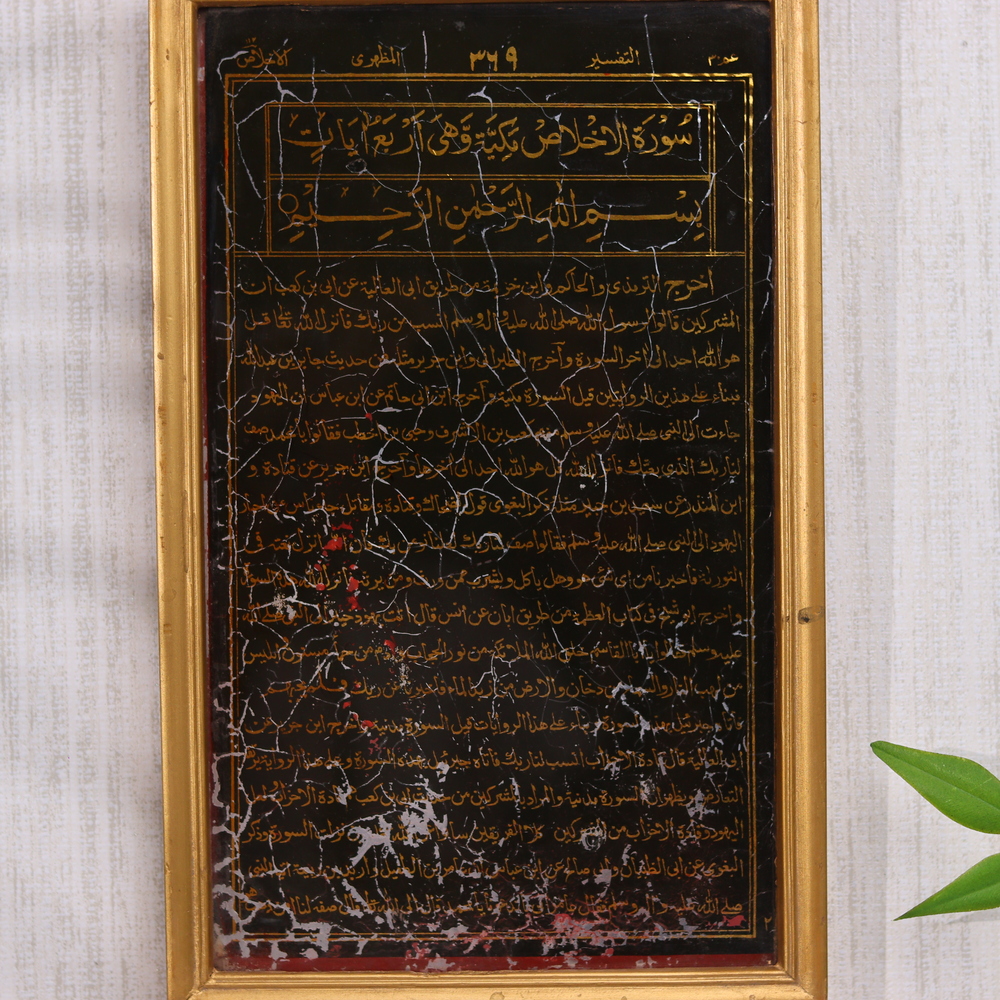 عم ٣٠ التفسير ٣٦٩ المظهرى الاخلاص
سُوْرَةُ الْاِخْلَاصِ مَكِّيَّةٌ وَّهِىَ اَرْبَعُ اٰيَاتٍ
بِسْمِ اللهِ الرَّحْمٰنِ الرَّحِيْمِ
أخرج الترمذى والحاكم وابن خزيمة من طريق ابى العالية عن ابى بن كعب ان
المشركين قالوا لرسول الله صلى الله عليه واله وسلم انسب لنا ربك فانزل الله تعالى قل
هو الله احد الى اخر السورة وآخرج الطبرانى وابن جرير مثله من حديث جابر بن عبد الله
فبناء على هذين الروايتين قيل السورة مكية وآخرج ابن ابى حاتم عن ابن عباس ان اليهود
جاءت الى النبى صلى الله عليه وسلم منهم كعب بن الاشرف وحيى بن اخطب فقالوا يا محمد صف
لنا ربك الذى بعثك فانزل الله قل هو الله احد الى اخرها وآخرج ابن جرير عن قتادة و
ابن المنذر عن سعيد بن جبير مثله ذكر البغوى قول الضحاك وقتادة ومقاتل جاء ناس من احبار
اليهود الى النبى صلى الله عليه وسلم فقالوا صف لنا ربك فان الله انزل نعته فى
التورية فاخبرنا من اى شئ هو وهل يأكل ويشرب وممن ورث ومن يرثه فانزل الله هذه السورة
واخرج ابو الشيخ فى كتاب العظمة من طريق ابان عن انس قال اتت يهود خيبر الى النبى صلى الله
عليه وسلم فقالوا يا ابا القاسم خلق الله الملائكة من نور الحجاب وادم من حمأ مسنون وابليس
من لهب النار والسماء من دخان والارض من زبد الماء فاخبرنا عن ربك فلم يجبهم
فاتاه جبرئيل بهذه السورة وبناء على هذا الروايات قيل السورة مدنية واخرج ابن جرير عن
ابى العالية قال قادة الاحزاب انسب لنا ربك فاتاه جبرئيل بهذه السورة وعلى هذا الرواية يزول
التعارض ويظهر ان السورة مدنية والمراد بالمشركين من حديث ابى بن كعب قادة الاحزاب
اليهود وقادة الاحزاب من المشركين كلا الفريقين سالوا
البغوى عن ابى ظبيان وابى صالح عن ابن عباس ان عامر بن الطفيل واربد بن ربيعة اتيا النبى
صلى الله عليه واله وسلم فقال عامر الى ما تدعونا يا محمد قال الى الله تعالى قال صفه لنا